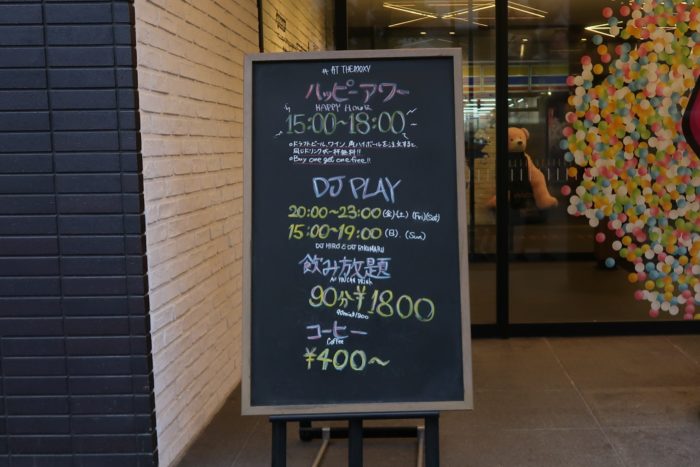 # AT THEMOXY
ハッピーアワー
HAPPY HOUR
15:00~18:00
○ドラフトビール、ワイン、角ハイボールをご注文すると、
同じドリンクが一杯無料!!
○Buy one get one free!!
DJ PLAY
20:00~23:00(金)(土)(Fri)(Sat)
15:00~19:00(日)(Sun)
DJ HIRO & DJ RIKUMARU
飲み放題
90分¥1800
コーヒー
Coffee
¥400~